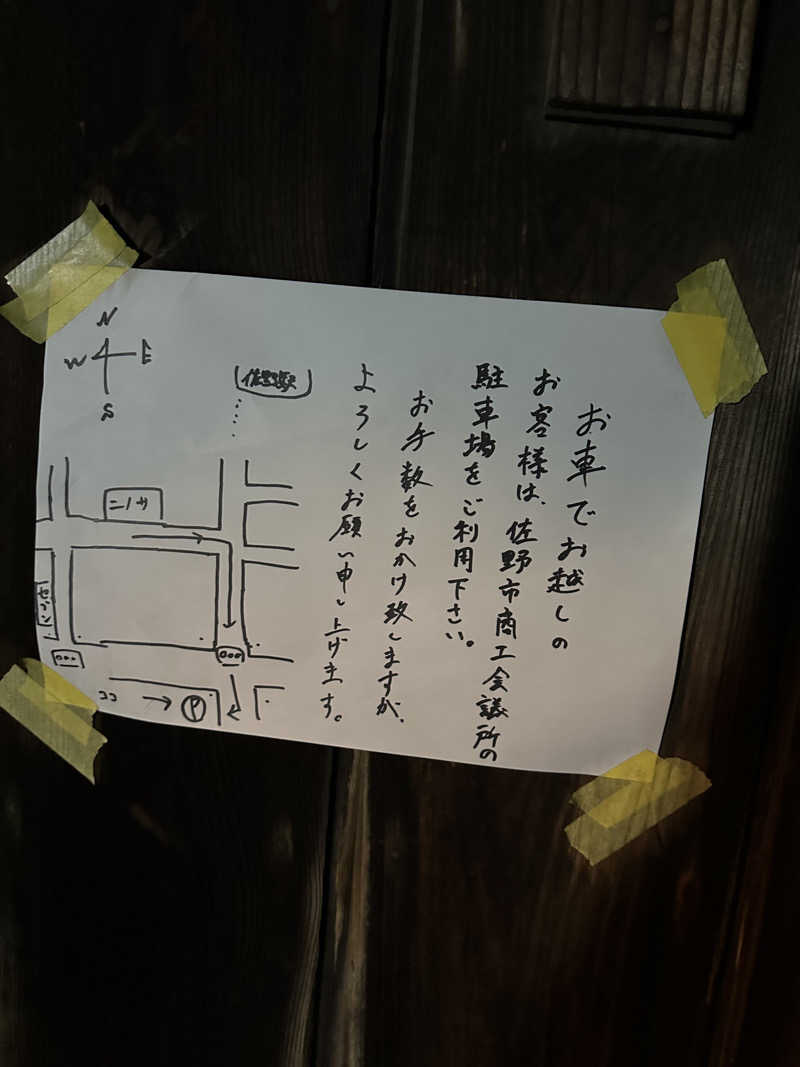 お車でお越しの
お客様は、佐野市商工会議所の
駐車場をご利用下さい。
お手数をおかけ致しますが、
よろしくお願い申し上げます。
N
W
E
S
佐野駅
セブン
ココ
P